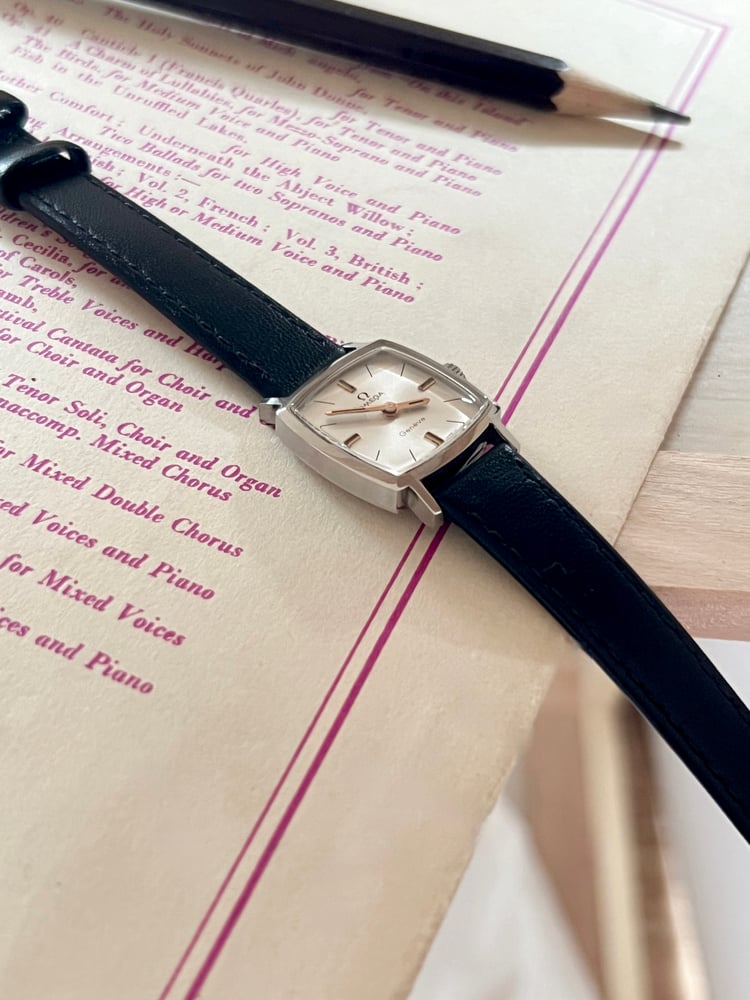 The Holy Sonnets of John Donne, for Tenor and Piano
Canticle I (Francis Quarles), for Tenor and Piano
A Charm of Lullabies, for Mezzo-Soprano and Piano
The Birds, for Medium Voice and Piano
Fish in the Unruffled Lakes,
for High Voice and Piano
other Comfort; Underneath the Abject Willow;
Two Ballads for two Sopranos and Piano
Arrangements:—
Vol. 2, French; Vol. 3, British;
for High or Medium Voice and Piano
Cecilia, for
of Carols,
Treble Voices and Harp
Cantata for Choir and
for Choir and Organ
Tenor Soli, Choir and Organ
Mixed Chorus
for Mixed Double Chorus
Voices and Piano
for Mixed Voices
and Piano
Ω
OMEGA
Genève